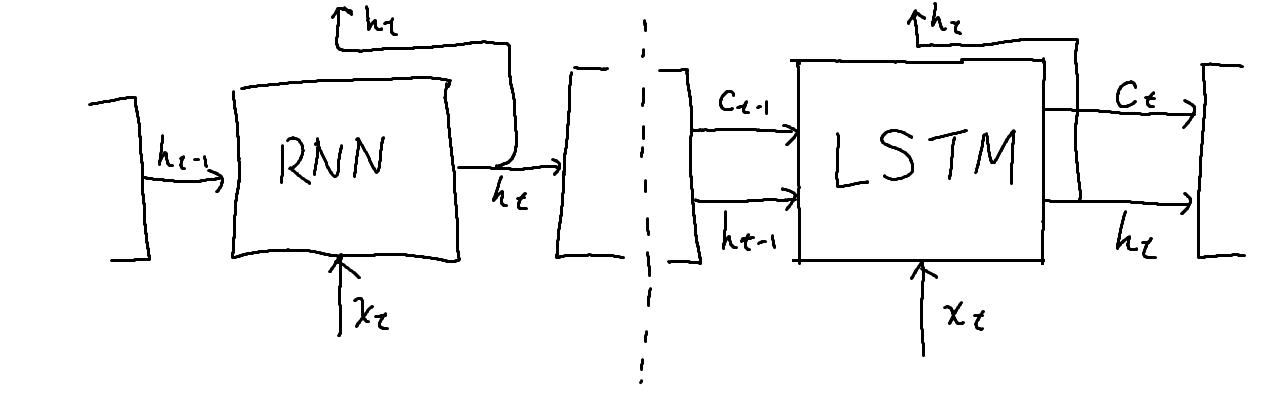 hₜ
hₜ₋₁
RNN
hₜ
xₜ
hₜ
Cₜ₋₁
Cₜ
LSTM
hₜ₋₁
hₜ
xₜ